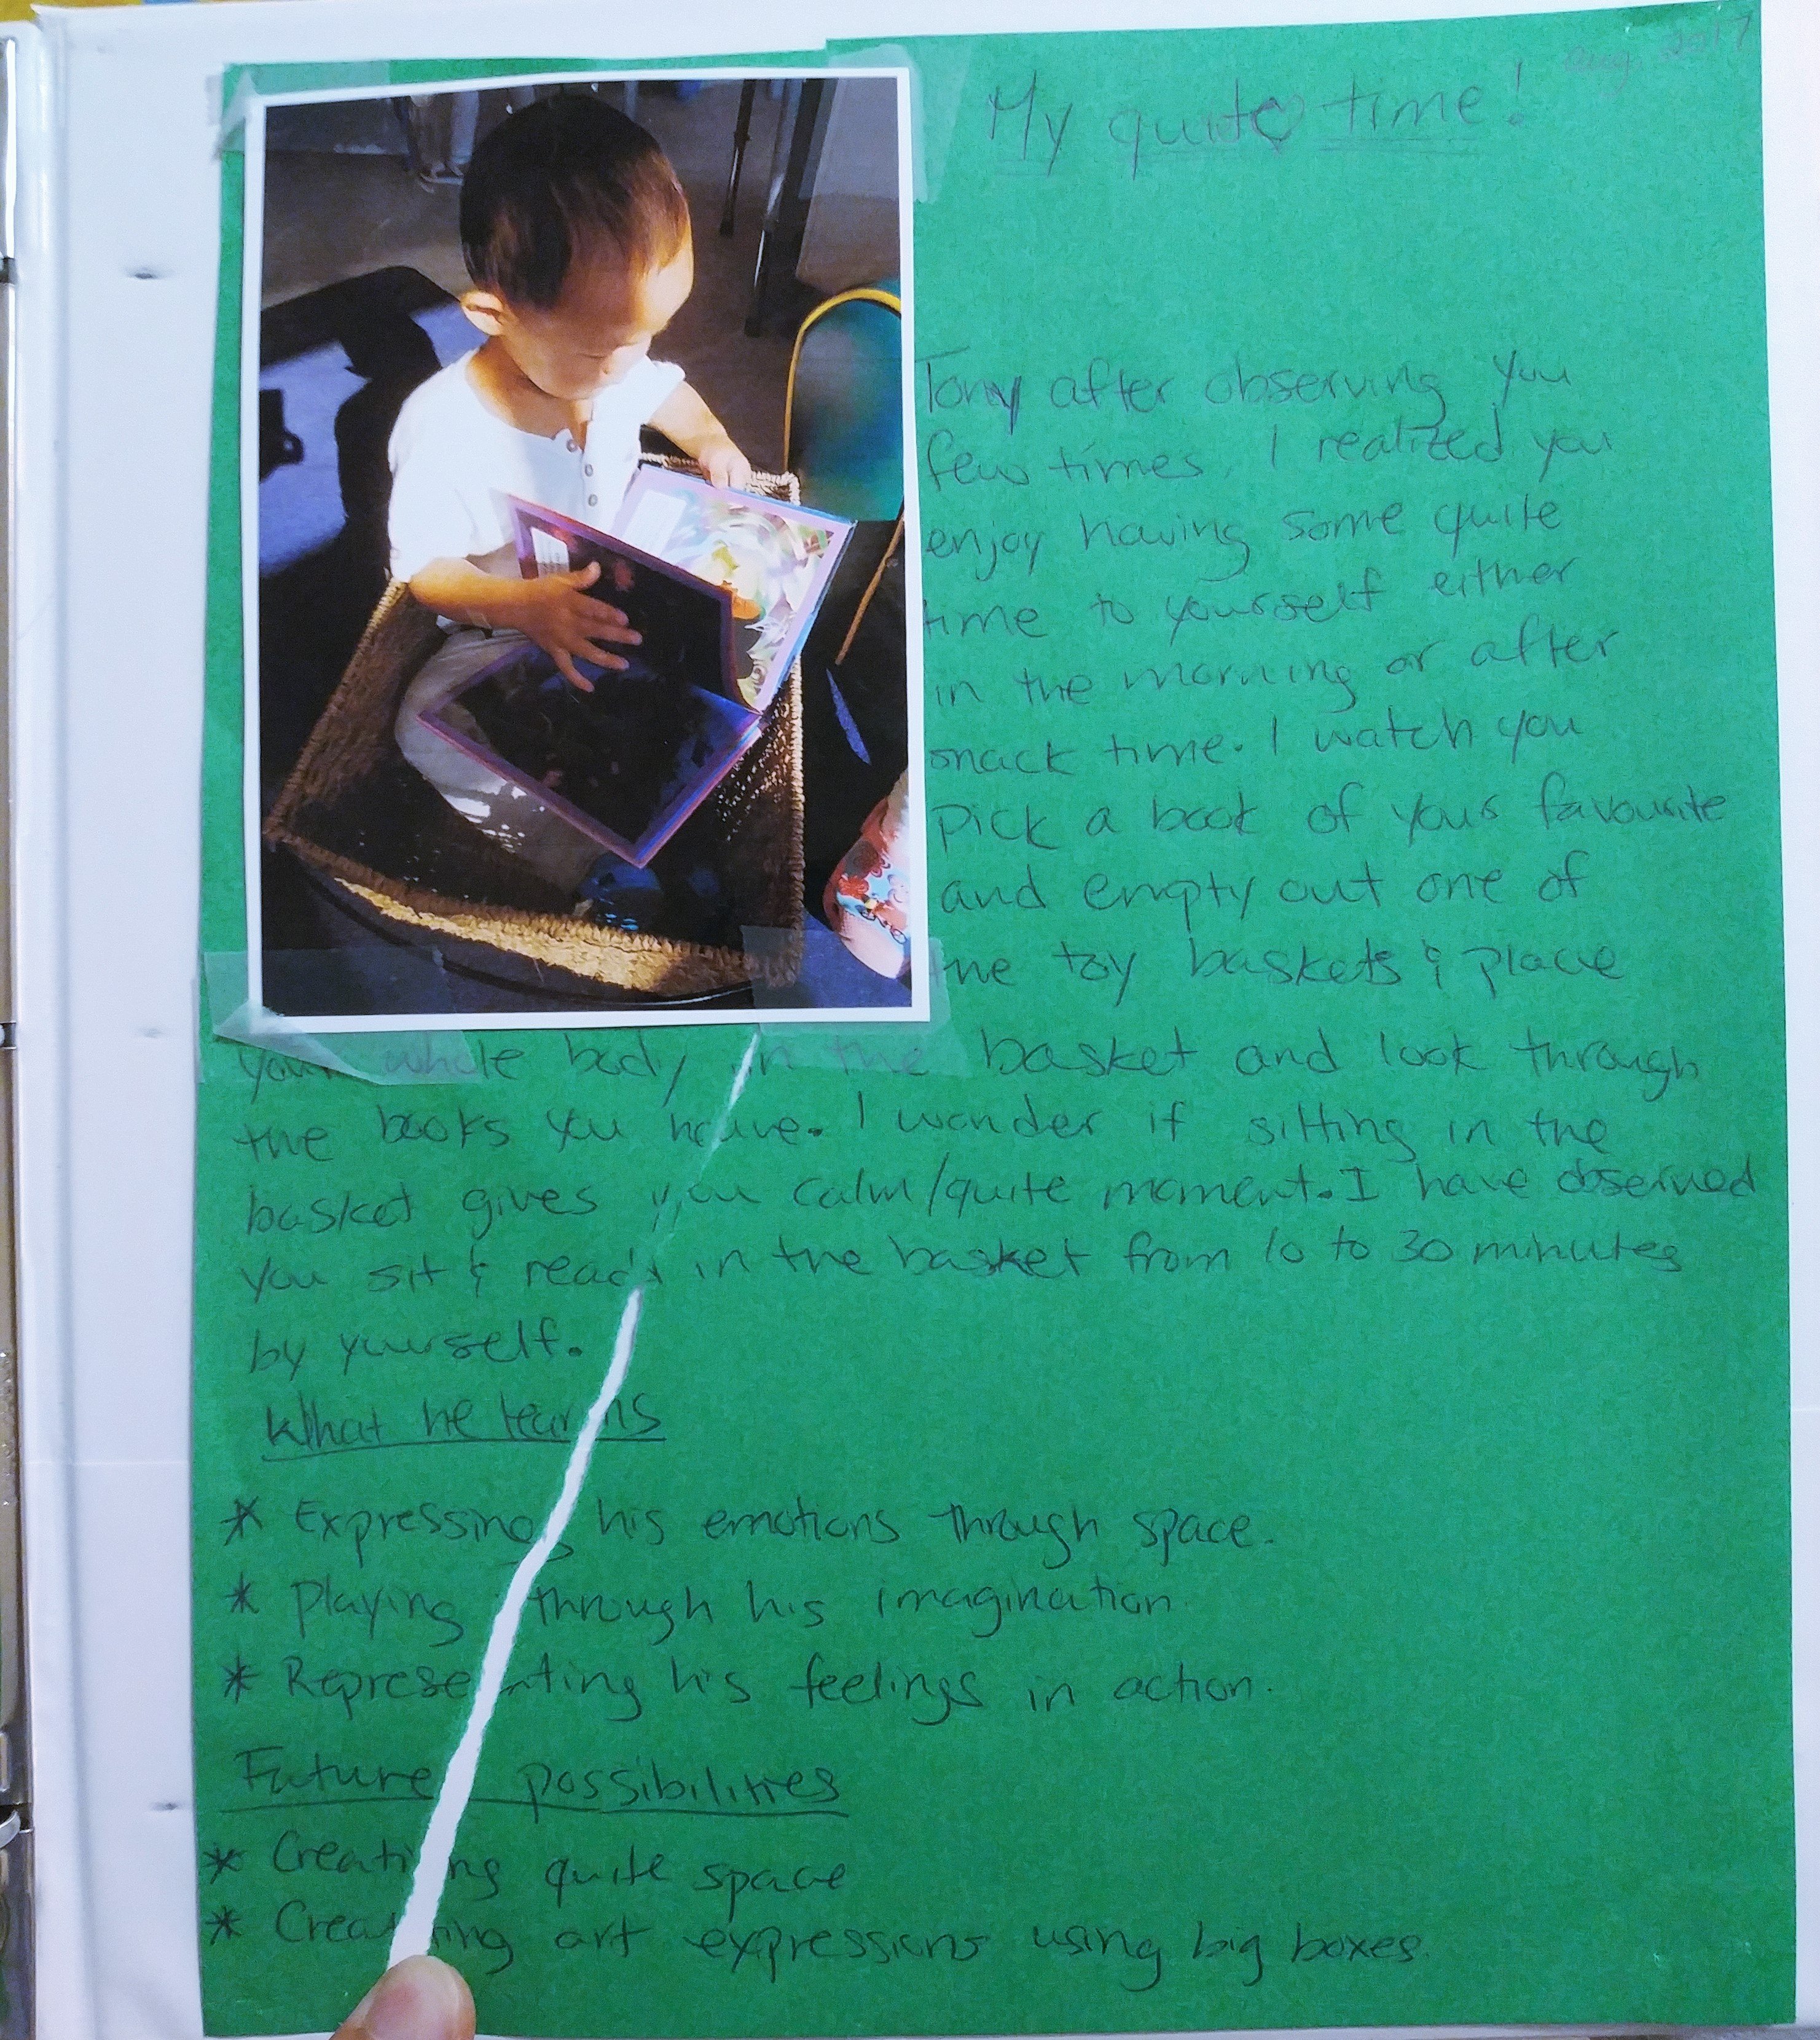 Aug. 2017
My quite time!
Tony after observing you
few times I realized you
enjoy having some quite
time to yourself either
in the morning or after
snack time. I watch you
Pick a book of your favourite
and empty out one of
the toy baskets & place
your whole body in the basket and look through
the books you have. I wonder if sitting in the
basket gives you calm/quite moment. I have observed
you sit & read in the basket from 10 to 30 minutes
by yourself.
What he learns
* Expressing his emotions through space.
* Playing through his imagination.
* Representing his feelings in action.
Future possibilities
* Creating quite space
* Creating art expressions using big boxes.